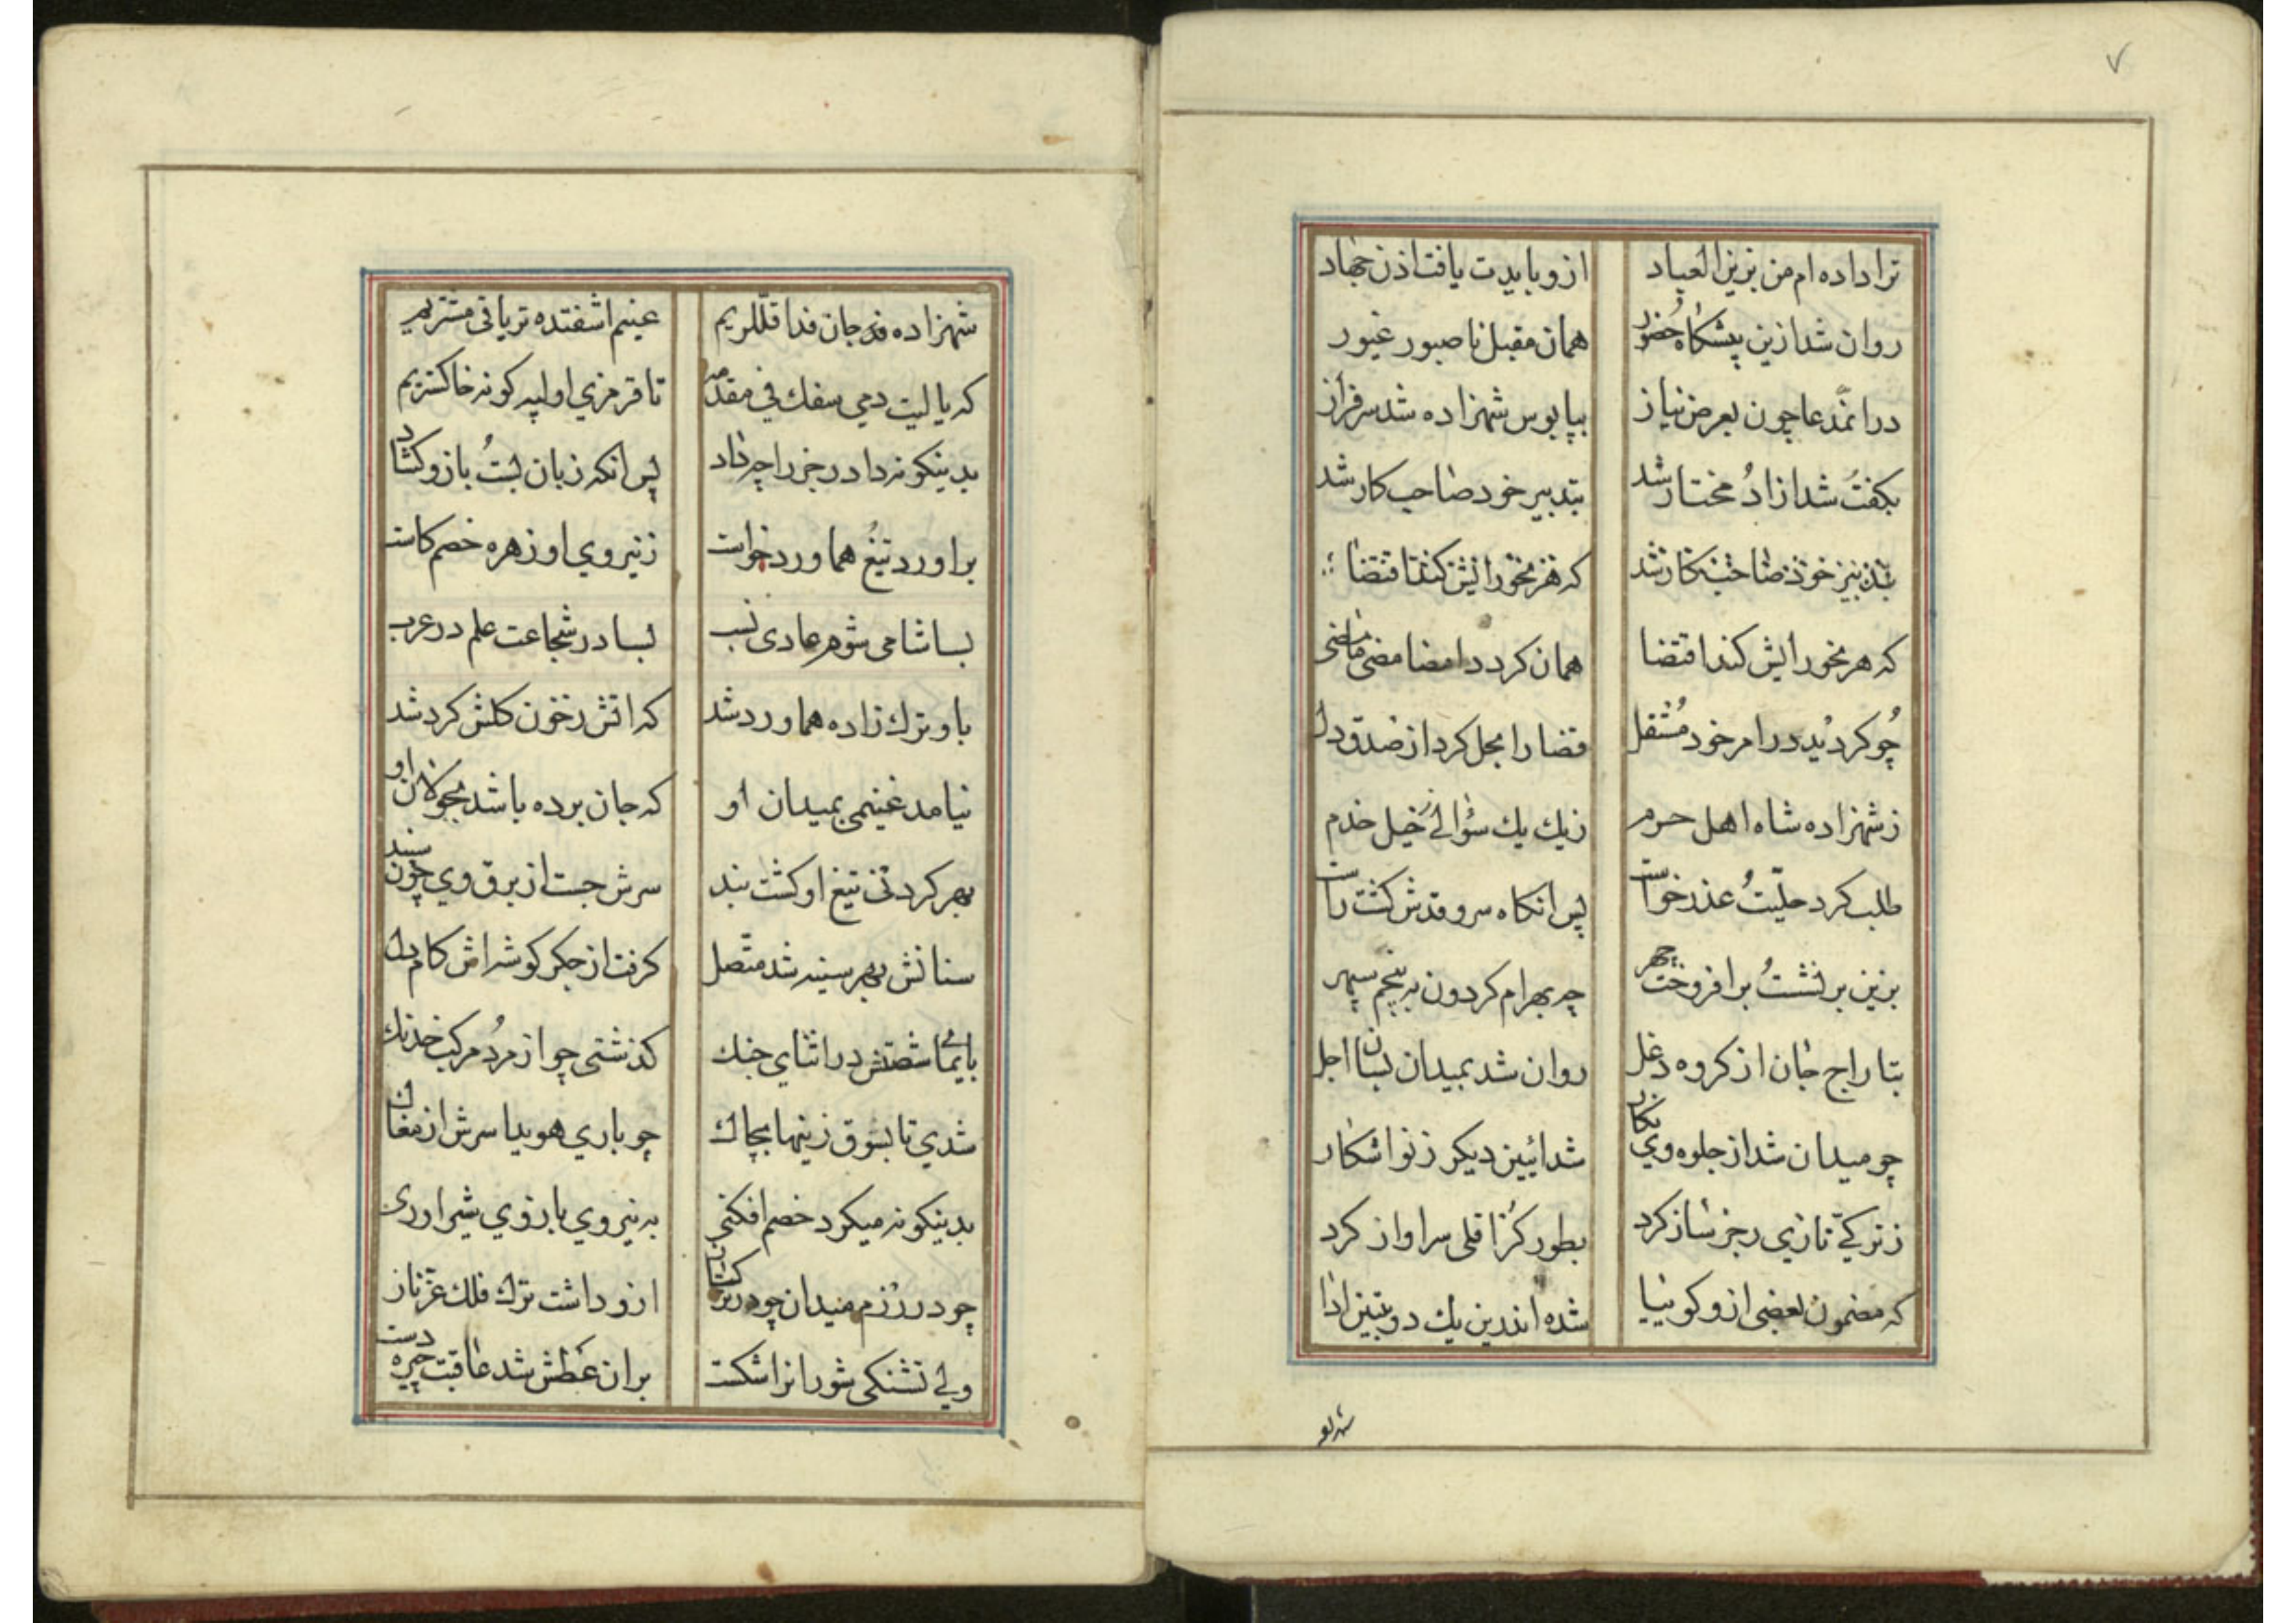 ۷
ترا داده‌ام من بزین العباد ازو بایدت یافت اذن جهاد
روان شد ازین پیشکاه حضور همان مقبل ناصبور غیور
در ان مدعا چون بعرض نیاز بپابوس شهزاده شد سرفراز
بکفت شد ازاد مختار شد بتدبیر خود صاحب کار شد
بتدبیر خود صاحب کار شد که هر نحو رایش کند اقتضا
که هر نحو رایش کند اقتضا همان کرد د امضا مضی مامضی
چو کردید در امر خود مشتغل قضا را بجل کرد از صدق دل
ز شهزاده شاه اهل حرم ز یك یك سؤالی خیل خدم
طلب کرد حلیت عذر خواست پس انکاه سرو قدش کشت راست
بزین بر نشست بر افروخت چهر چه بهرام کردون به پنجم سپهر
بتاراج جان از کروه دغل روان شد بمیدان بسان اجل
چو میدان شد از جلوه وی نکار شد ائین دیکر ز نو اشکار
ز ترکی تازی رجز ساز کرد بطور کزاقلی سر اواز کرد
که مضمون بعضی ازو کوییا شده اندرین یك دو بیتین ادا
شهزاده جان فدا قللریم عینم اشفتده تریاقی مشتریم
که یا لیت دمی سفك فی مقدمه تا قرمزی اولیه کونه خاکستریم
بدینکونه داد رجز را چه داد پس انکه زبان بست بازو کشاد
براورد تیغ هماورد خواست ز نیروی او زهره خصم کاست
بسا شامی شوم عادی نسب بسا در شجاعت علم در عرب
با و ترك زاده هماورد شد که اتش ز خون کلش کرد شد
نیامد غنیمی بمیدان او که جان برده باشد بجولان او
بهر کردنی تیغ او کشت بند سرش جست از برق وی چون سپند
سنانش بهر سینه شد متصل کرفت از جکر کوشه اش کام دل
بایمای شصتش در اثنای جنك کذشتی چو از مرد مرکب خدنك
شدی تا بسوق زینها بچاك چو باری هویدا سرش از مغاك
بدینکونه میکرد خصم افکنی به نیروی بازوی شیر اوری
چو در رزم میدان چو در ازو داشت ترك فلك عز ناز
ولی تشنکی شور انرا شکست بران عطش شد عاقبت چیره دست